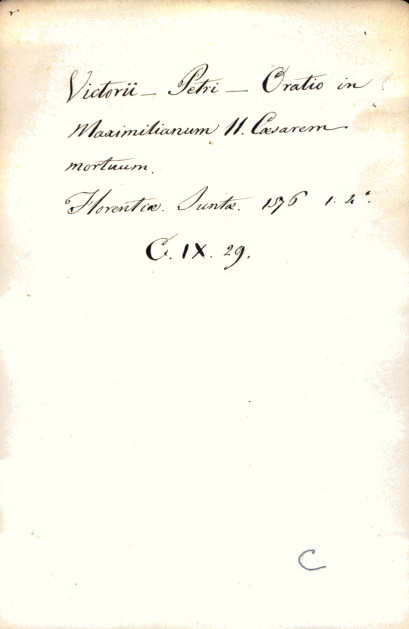 Victorii – Petri – Oratio in
Maximilianum II. Cæsarem
mortuum.
Florentiæ. Juntæ. 1576 1. 4°.
G. IX. 29.
C